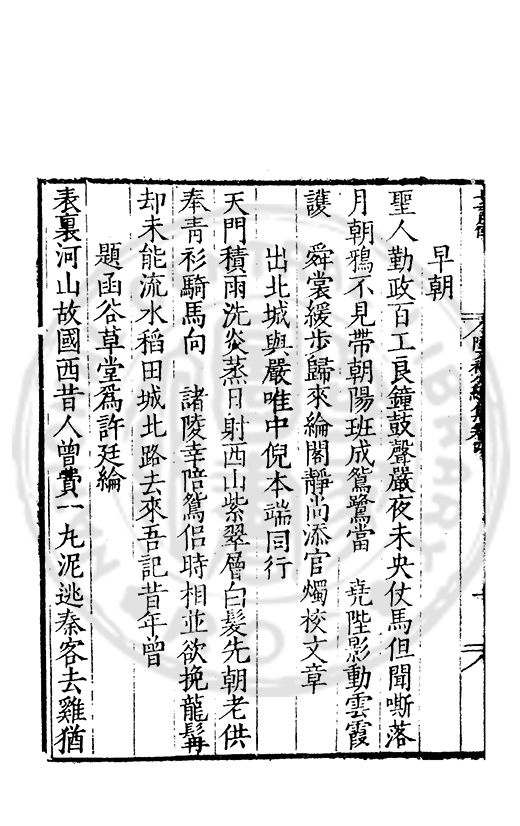 早朝
聖人勤政百工良鐘鼓聲嚴夜未央仗馬但聞嘶落
月朝鴉不見帶朝陽班成鴛鷺當　堯陛影動雲霞
護　舜裳緩步歸來綸閣靜尚添官燭校文章
出北城與嚴唯中倪本端同行
天門積雨洗炎蒸日射西山紫翠層白髮先朝老供
奉青衫騎馬向　諸陵幸陪鴛侶時相並欲挽龍髯
却未能流水稻田城北路去來吾記昔年曾
題函谷草堂爲許廷綸
表裏河山故國西昔人曾費一丸泥逃秦客去雞猶